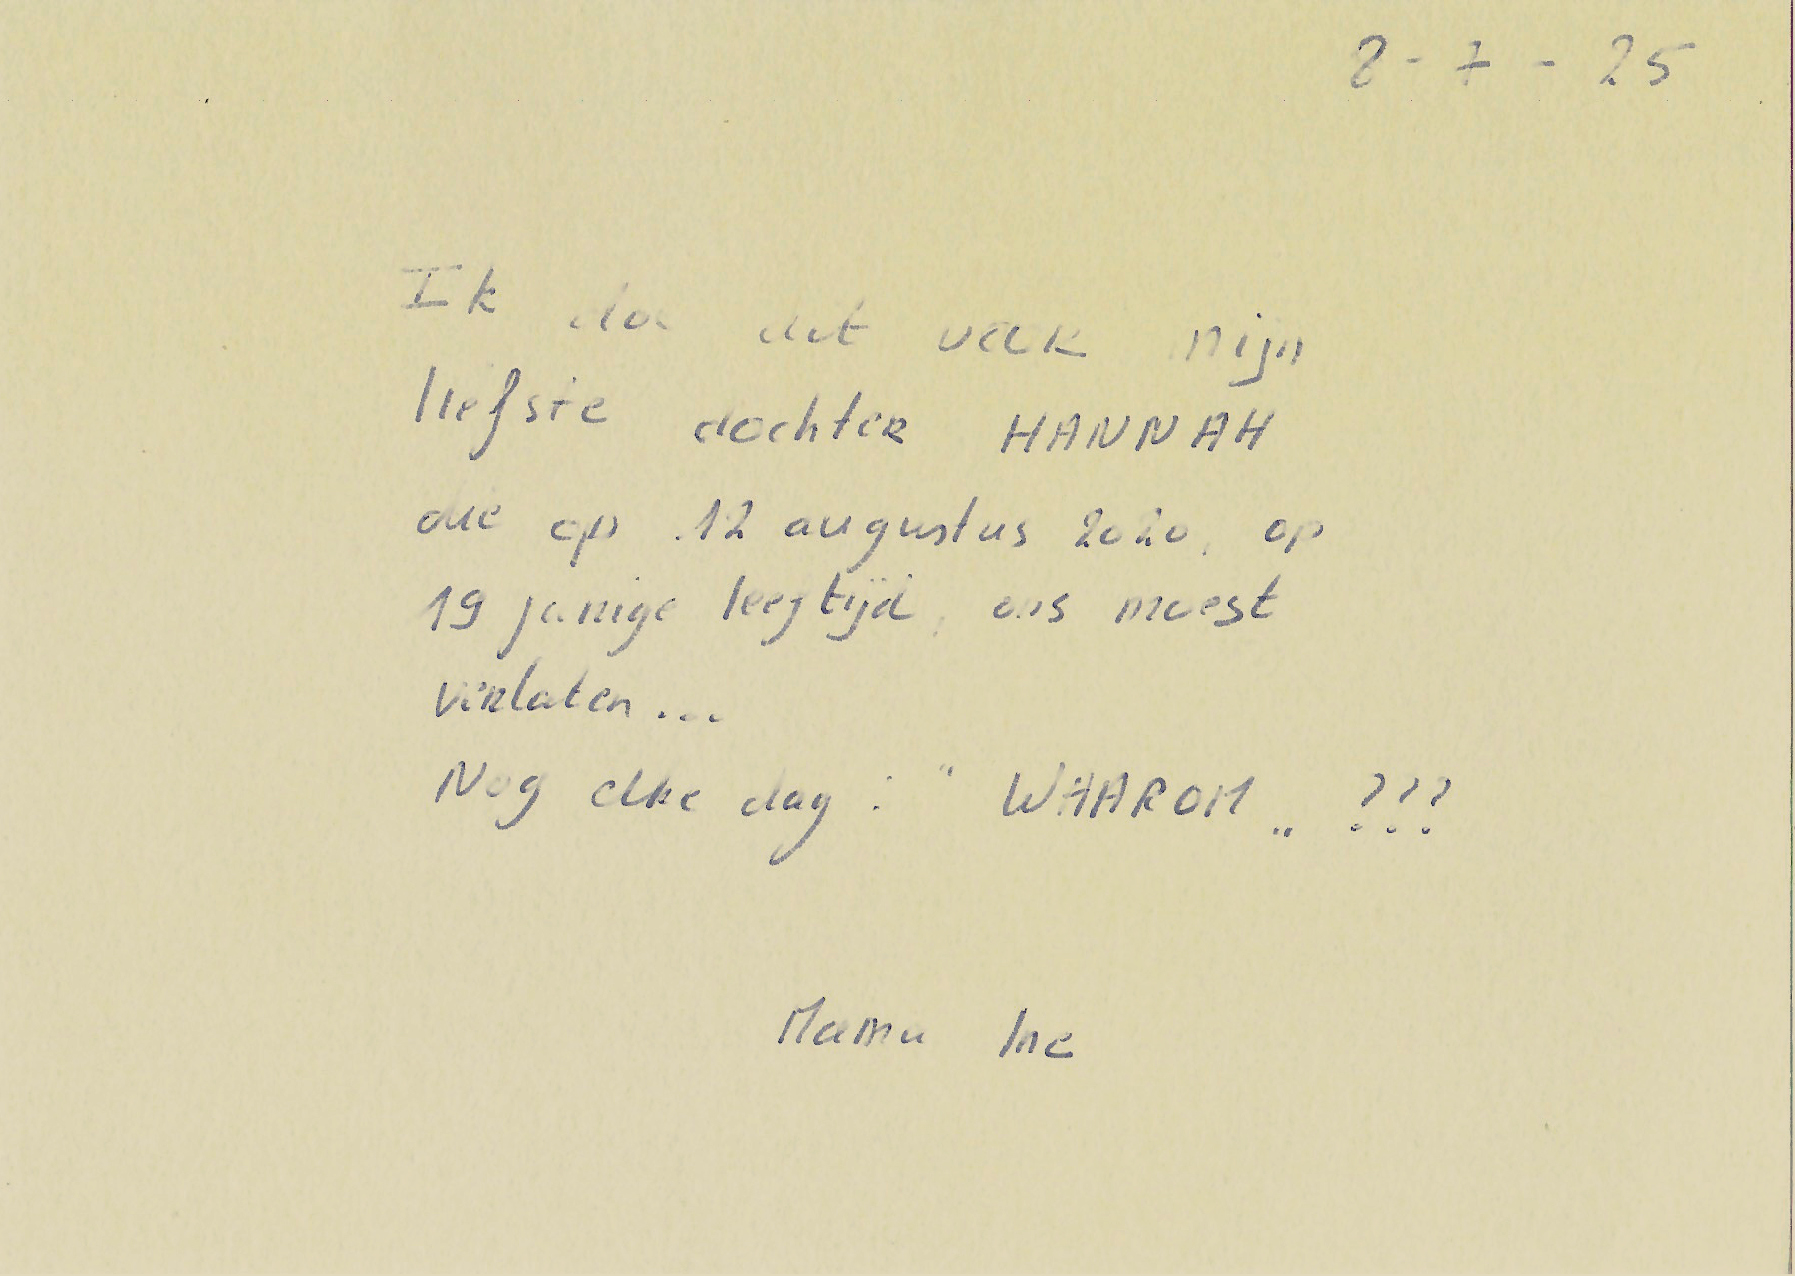 8-7-25
Ik doe dit voor mijn
liefste dochter HANNAH
die op 12 augustus 2020, op
19 jarige leeftijd, ons moest
verlaten...
Nog elke dag : " WAAROM „ ???
Mama Ine